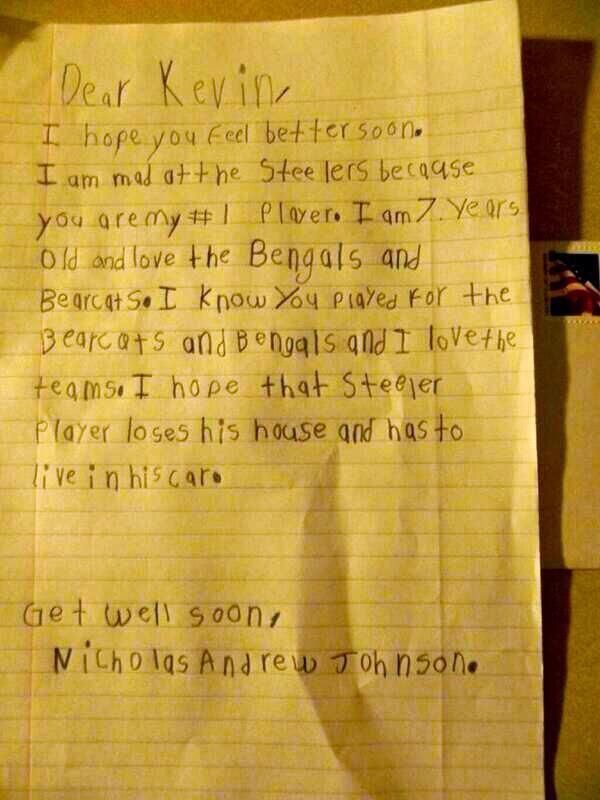 Dear Kevin,
I hope you feel better soon.
I am mad at the Steelers because
you are my #1 Player. I am 7. Years
Old and love the Bengals and
Bearcats. I know You played For the
Bearcats and Bengals and I love the
teams. I hope that Steeler
Player loses his house and has to
live in his car.
Get well soon,
Nicholas Andrew Johnson.